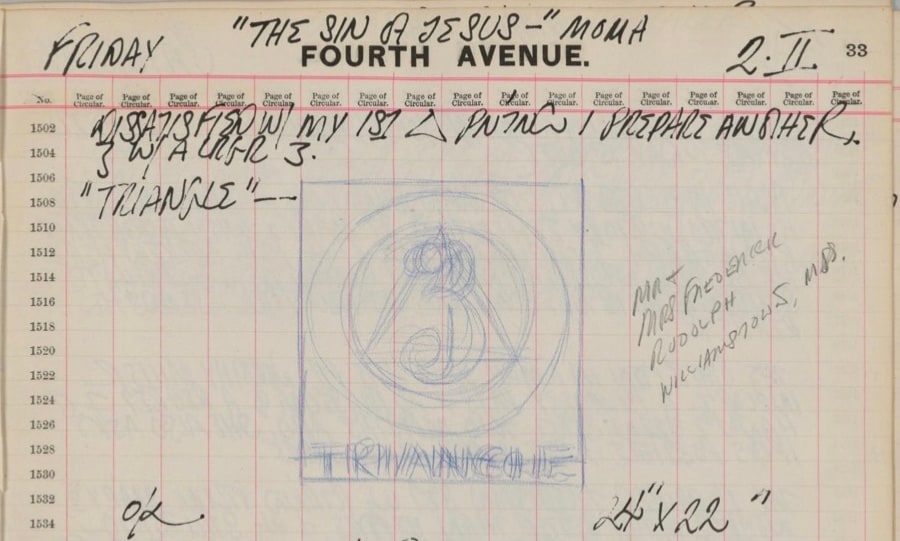 "THE SIN OF JESUS-" MOMA
FRIDAY FOURTH AVENUE. 2·II. 33
No. Page of Circular. Page of Circular. Page of Circular. Page of Circular. Page of Circular. Page of Circular. Page of Circular. Page of Circular. Page of Circular. Page of Circular. Page of Circular. Page of Circular. Page of Circular. Page of Circular. Page of Circular. Page of Circular. Page of Circular.
1502 DISSATISFIED W/ MY 1ST △ PNTNG I PREPARE ANOTHER,
1504 & W/ A LRGR 3.
1506
1508 "TRIANGLE"--
1510
1512
1514
1516
1518
1520
1522
1524
1526
1528
1530
1532
1534
MR +
MRS. FREDERICK
RUDOLPH
WILLIAMSTOWN, MASS.
TRIANGLE
O/C 24" X 22"